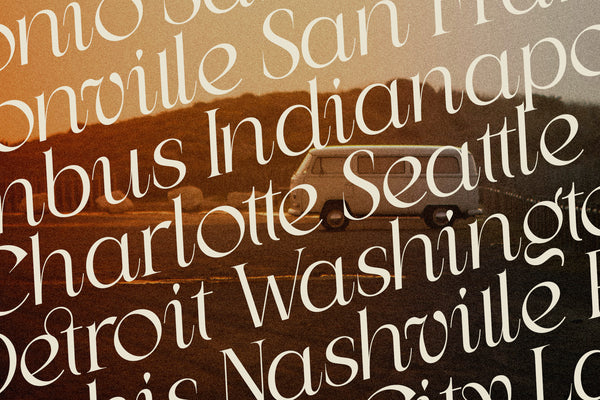 onio Sa
onville San Fran
mbus Indianapo
Charlotte Seattle
Detroit Washingto
his Nashville
City La